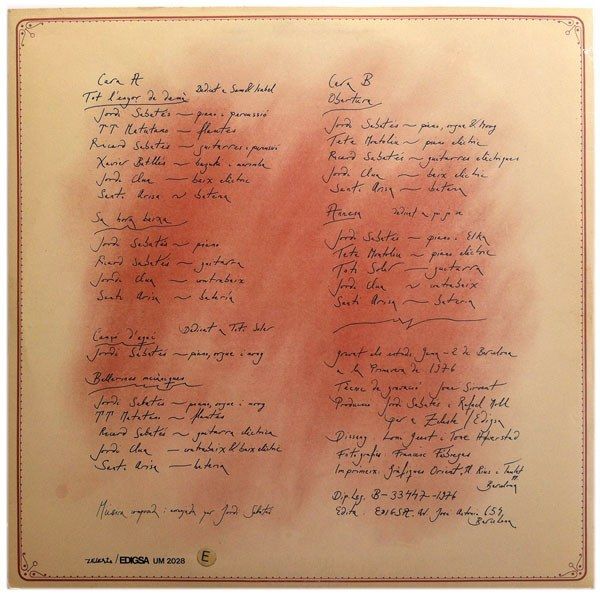 Cara A
Tot l'enyor de demà Dedicat a Samuel i Isabel
Jordi Sabatés — piano i percussió
TT Matutano — flautes
Ricard Sabatés — guitarres i percusió
Xavier Batllés — baguls i
Jordi Clua — baix elèctric
Santi Arisa — bateria
Sa hora baixa
Jordi Sabatés — piano
Ricard Sabatés — guitarra
Jordi Clua — contrabaix
Santi Arisa — bateria
Cançó d'agost Dedicat a Toti Soler
Jordi Sabatés — piano, orgue i moog
Ballarines mecàniques
Jordi Sabatés — piano, orgue i moog
TT Matutano — flautes
Ricard Sabatés — guitarra elèctrica
Jordi Clua — contrabaix i baix elèctric
Santi Arisa — bateria
Musica composada i arranjada per Jordi Sabatés
zeleste / EDIGSA UM 2028 E
Cara B
Obertura
Jordi Sabatés — piano, orgue i Moog
Tete Montoliu — piano elèctric
Ricard Sabatés — guitarres elèctriques
Jordi Clua — baix elèctric
Santi Arisa — bateria
Dedicat a
Jordi Sabatés — piano i Elka
Tete Montoliu — piano elèctric
Toti Soler — guitarra
Jordi Clua — contrabaix
Santi Arisa — bateria
gravat als estudis Gema-2 de Barcelona
a la Primavera de 1976
Tècnic de gravació Joan Sirvent
Produccio Jordi Sabatés i Rafael Moll
per a Zeleste / Edigsa
Disseny
Fotografies Francesc Fàbregas
Imprimeix: Gràfiques Orient, Rius i Taulet
Barcelona
Dip. Leg. B-33447-1976
Edita. EDIGSA. Av. José Antonio 654,
Barcelona